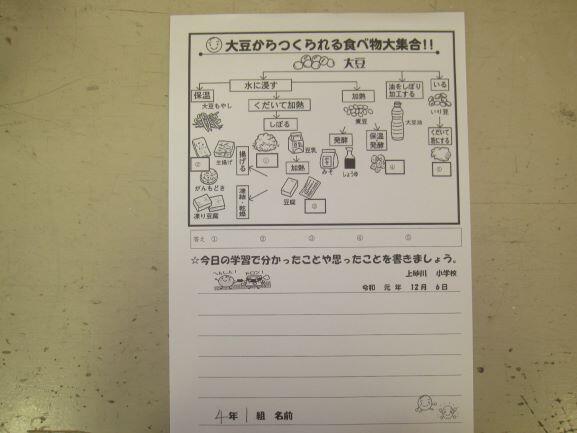 大豆からつくられる食べ物大集合!!
大豆
水に浸す
油をしぼり
加工する
いる
保温
大豆もやし
くだいて加熱
加熱
煮豆
大豆油
いり豆
しぼる
発酵
保温
発酵
くだいて
粉にする
生揚げ
揚げる
①
豆乳
みそ
しょうゆ
④
⑤
②
がんもどき
加熱
豆腐
③
凍り豆腐
凍結・乾燥
答え ① ② ③ ④ ⑤
☆今日の学習で分かったことや思ったことを書きましょう。
上砂川 小学校
令和 元 年 12 月 6 日
4 年 1 組 名前